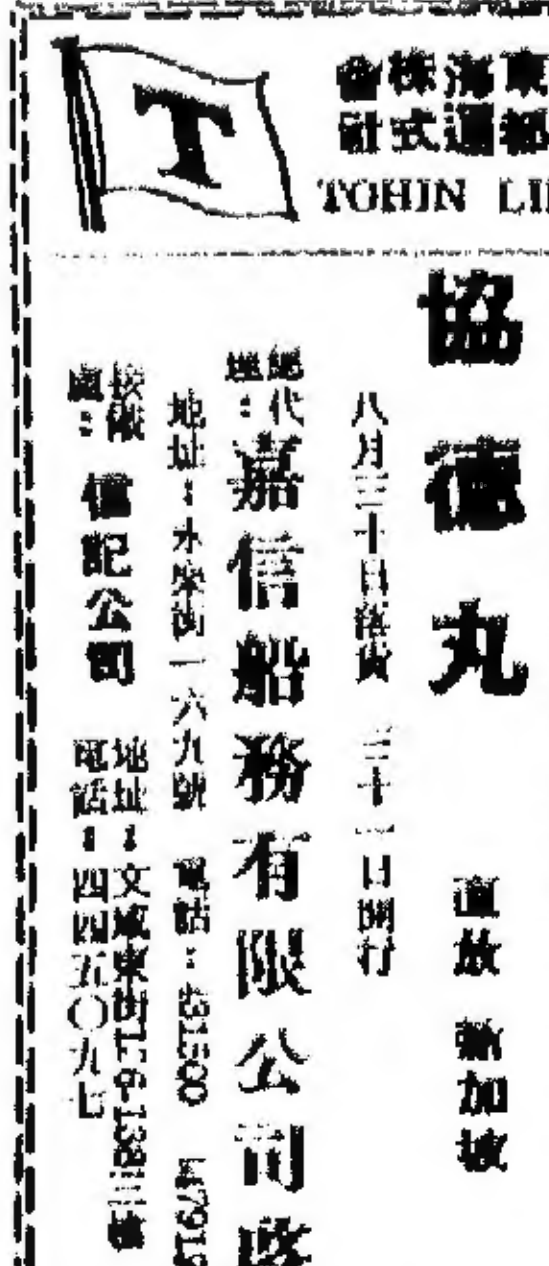 T
東海株會
運式社
TOHIN LI
協德丸
直放 新加坡
八月三十日落貨 三十一日開行
總代理：嘉信船務有限公司啓
地址：永樂街一六九號 電話：431500
接儎處：信記公司
地址：文咸東街
電話：四四五〇九七